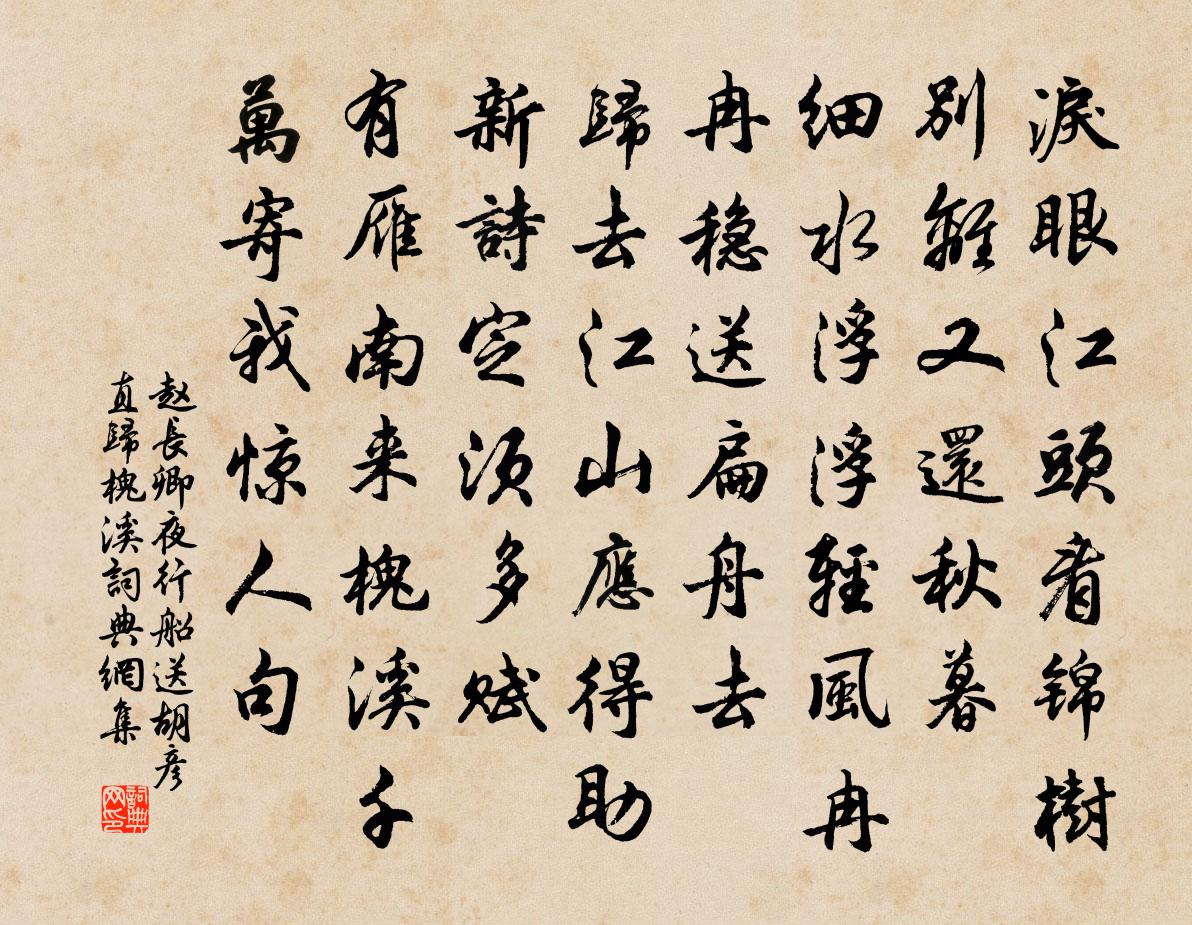 淚眼江頭看锦樹
別離又還秋暮
细水浮浮輕風冉
冉稳送扁舟去
歸去江山應得助
新詩定须多赋
有雁南来槐溪千
萬寄我惊人句
赵長卿夜行船送胡彦
直歸槐溪詞典網集
詞典
网印